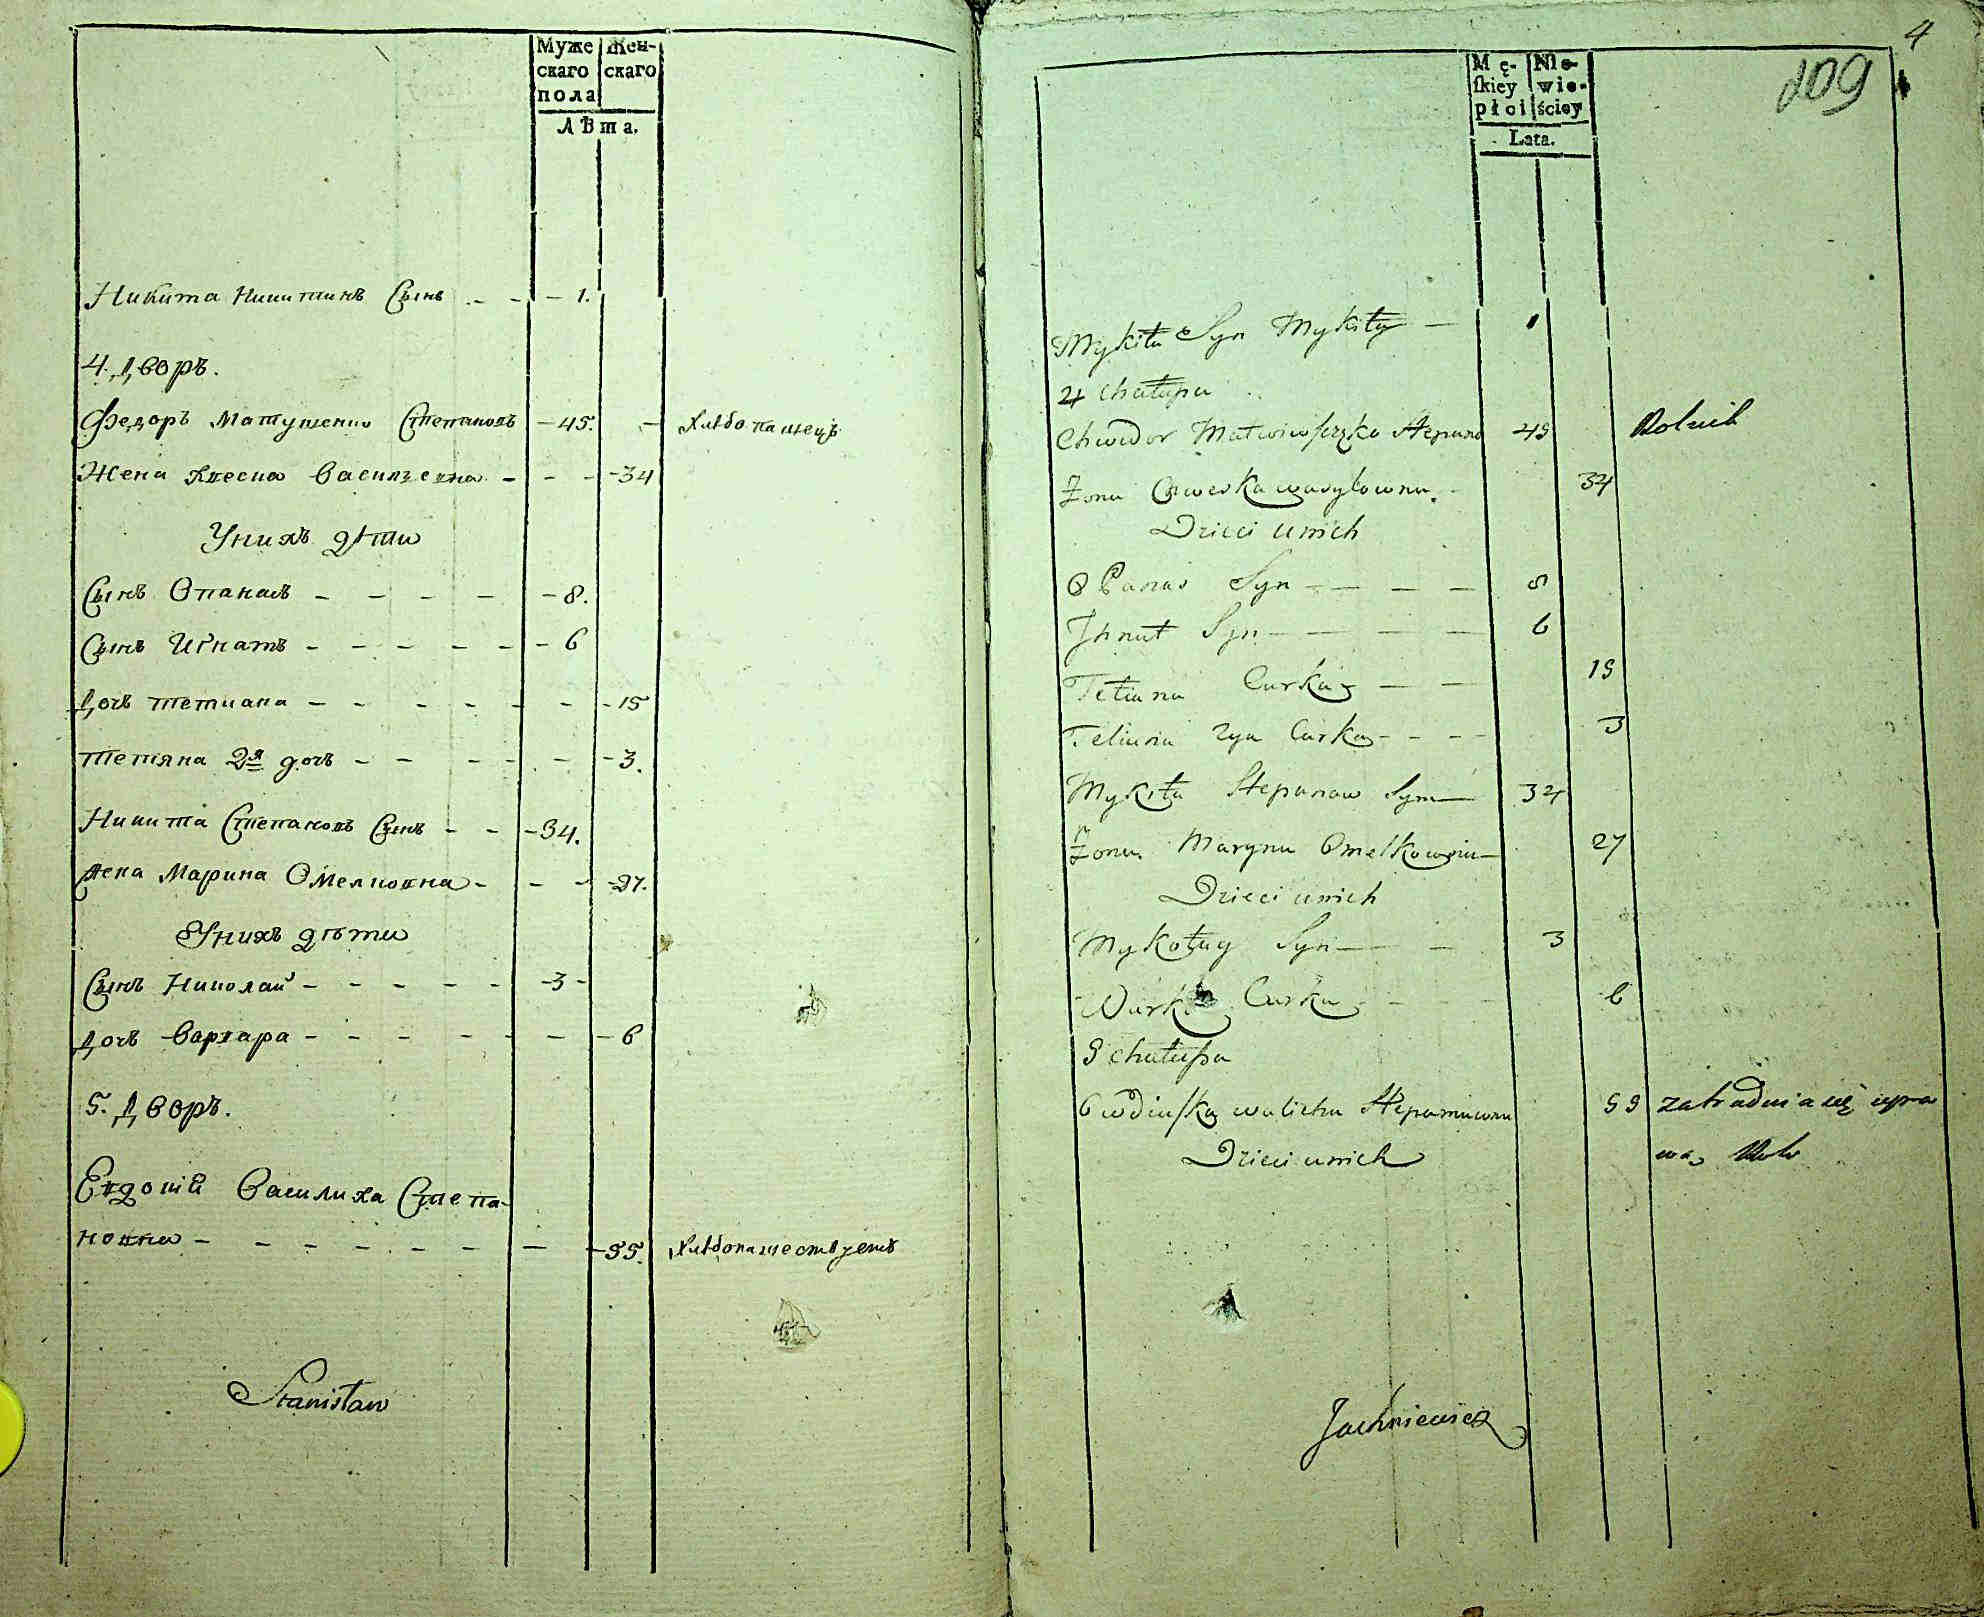 Муже Жен-
скаго скаго
пола
Лѣта.
Никита Никитинъ Сынъ - - - 1.
4. Дворъ.
Федоръ Матушенко Степановъ - 45. - хлѣбопашецъ
Жена Хвеска Васильевна - - - - 34
У нихъ дѣти
Сынъ Опанасъ - - - - - 8.
Сынъ Игнатъ - - - - - - 6
Дочь Тетиана - - - - - - - 15
Тетяна 2я дочь - - - - - - 3.
Никита Степановъ Сынъ - - - 34.
Жена Марина Омелковна - - - - 27.
У нихъ дѣти
Сынъ Николай - - - - - - 3 -
Дочь Варвара - - - - - - - 6
5. Дворъ.
Евдокія Василиха Степа-
новна - - - - - - - - - 55. хлѣбопашествуетъ
Stanisław
4
109
Mę- Nie-
skiey wie-
płci ściey
Lata.
Mykita Syn Mykity - 1
4 chałupa
Chwedor Stepanow 45 Rolnik
Żona Chweska Wasylowna. - 34
Dzieci u nich
Opanas Syn - - - - 8
Ihnat Syn - - - - 6
Tetiana Curka - - 15
Tetiana 2ga Curka - - - - 3
Mykita Stepanow Syn - 34
Żona Maryna Omelkowna - 27
Dzieci u nich
Mykołay Syn - - 3
Warka Curka - - - - 6
5 chałupa
Owdiuska Walicha Stepanowna 55 zatradnia się upra
Dzieci u nich wą Roli
Jachniewicz